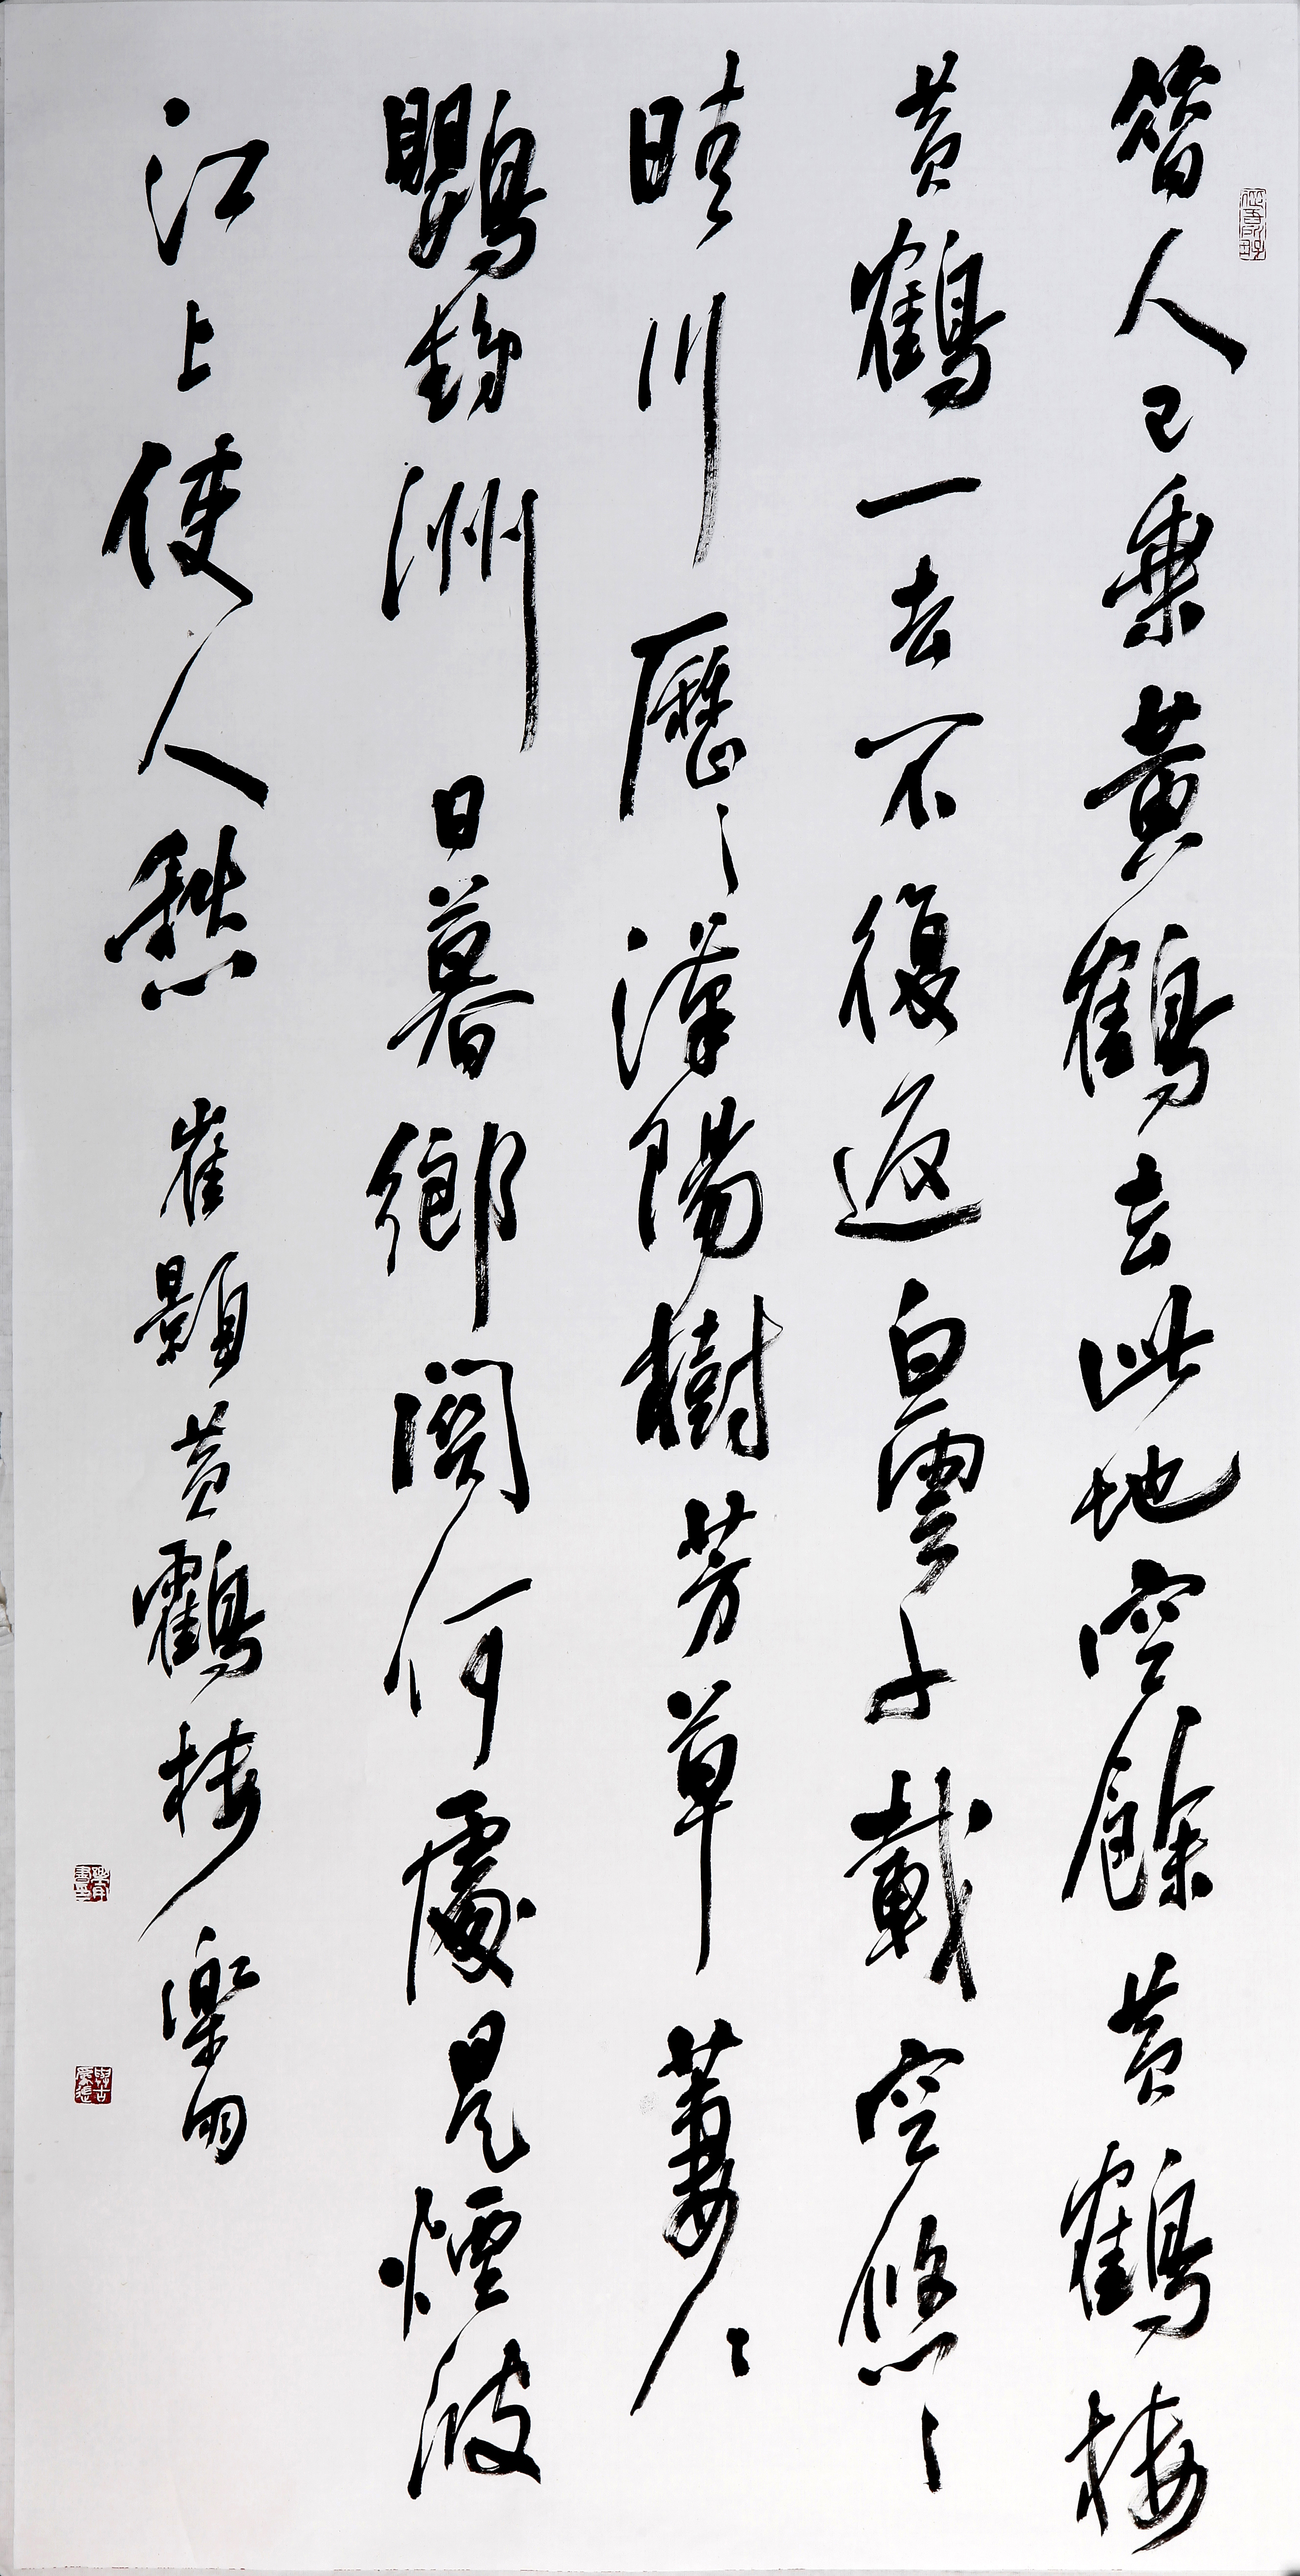 昔人已乘黃鶴去此地空餘黃鶴樓
黃鶴一去不復返白雲千載空悠々
晴川歷々漢陽樹芳草萋々
鸚鵡洲日暮鄉關何處是煙波
江上使人愁 崔顥黃鶴樓